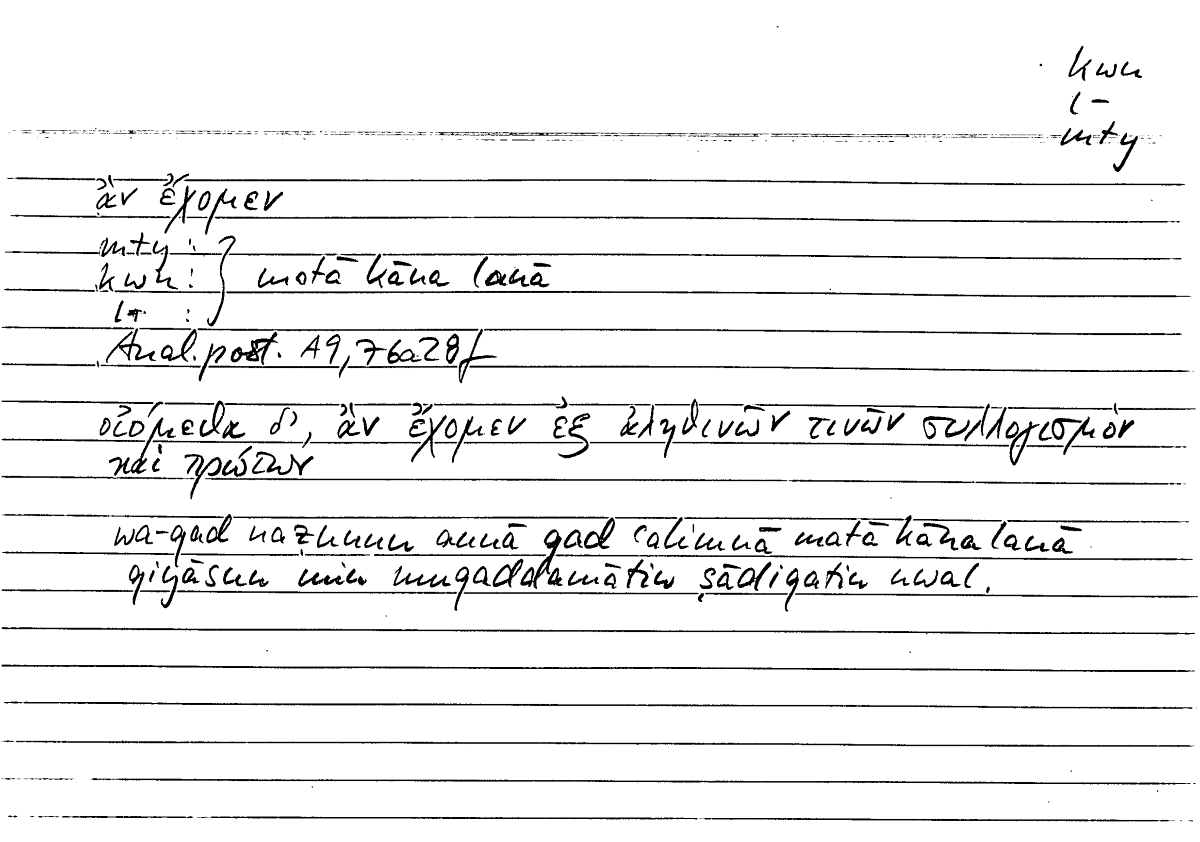 kwn
l-
mty
ἂν ἔχομεν
mty :
kwn : } matā kāna lanā
l- :
Anal. post. A9, 76a28f
οἰόμεθα δ', ἂν ἔχομεν ἐξ ἀληθινῶν τινῶν συλλογισμὸν
καὶ πρώτων
wa-qad naẓunnu annā qad ʿalimnā matā kāna lanā
qiyāsun min muqaddamātin ṣādiqatin uwal.